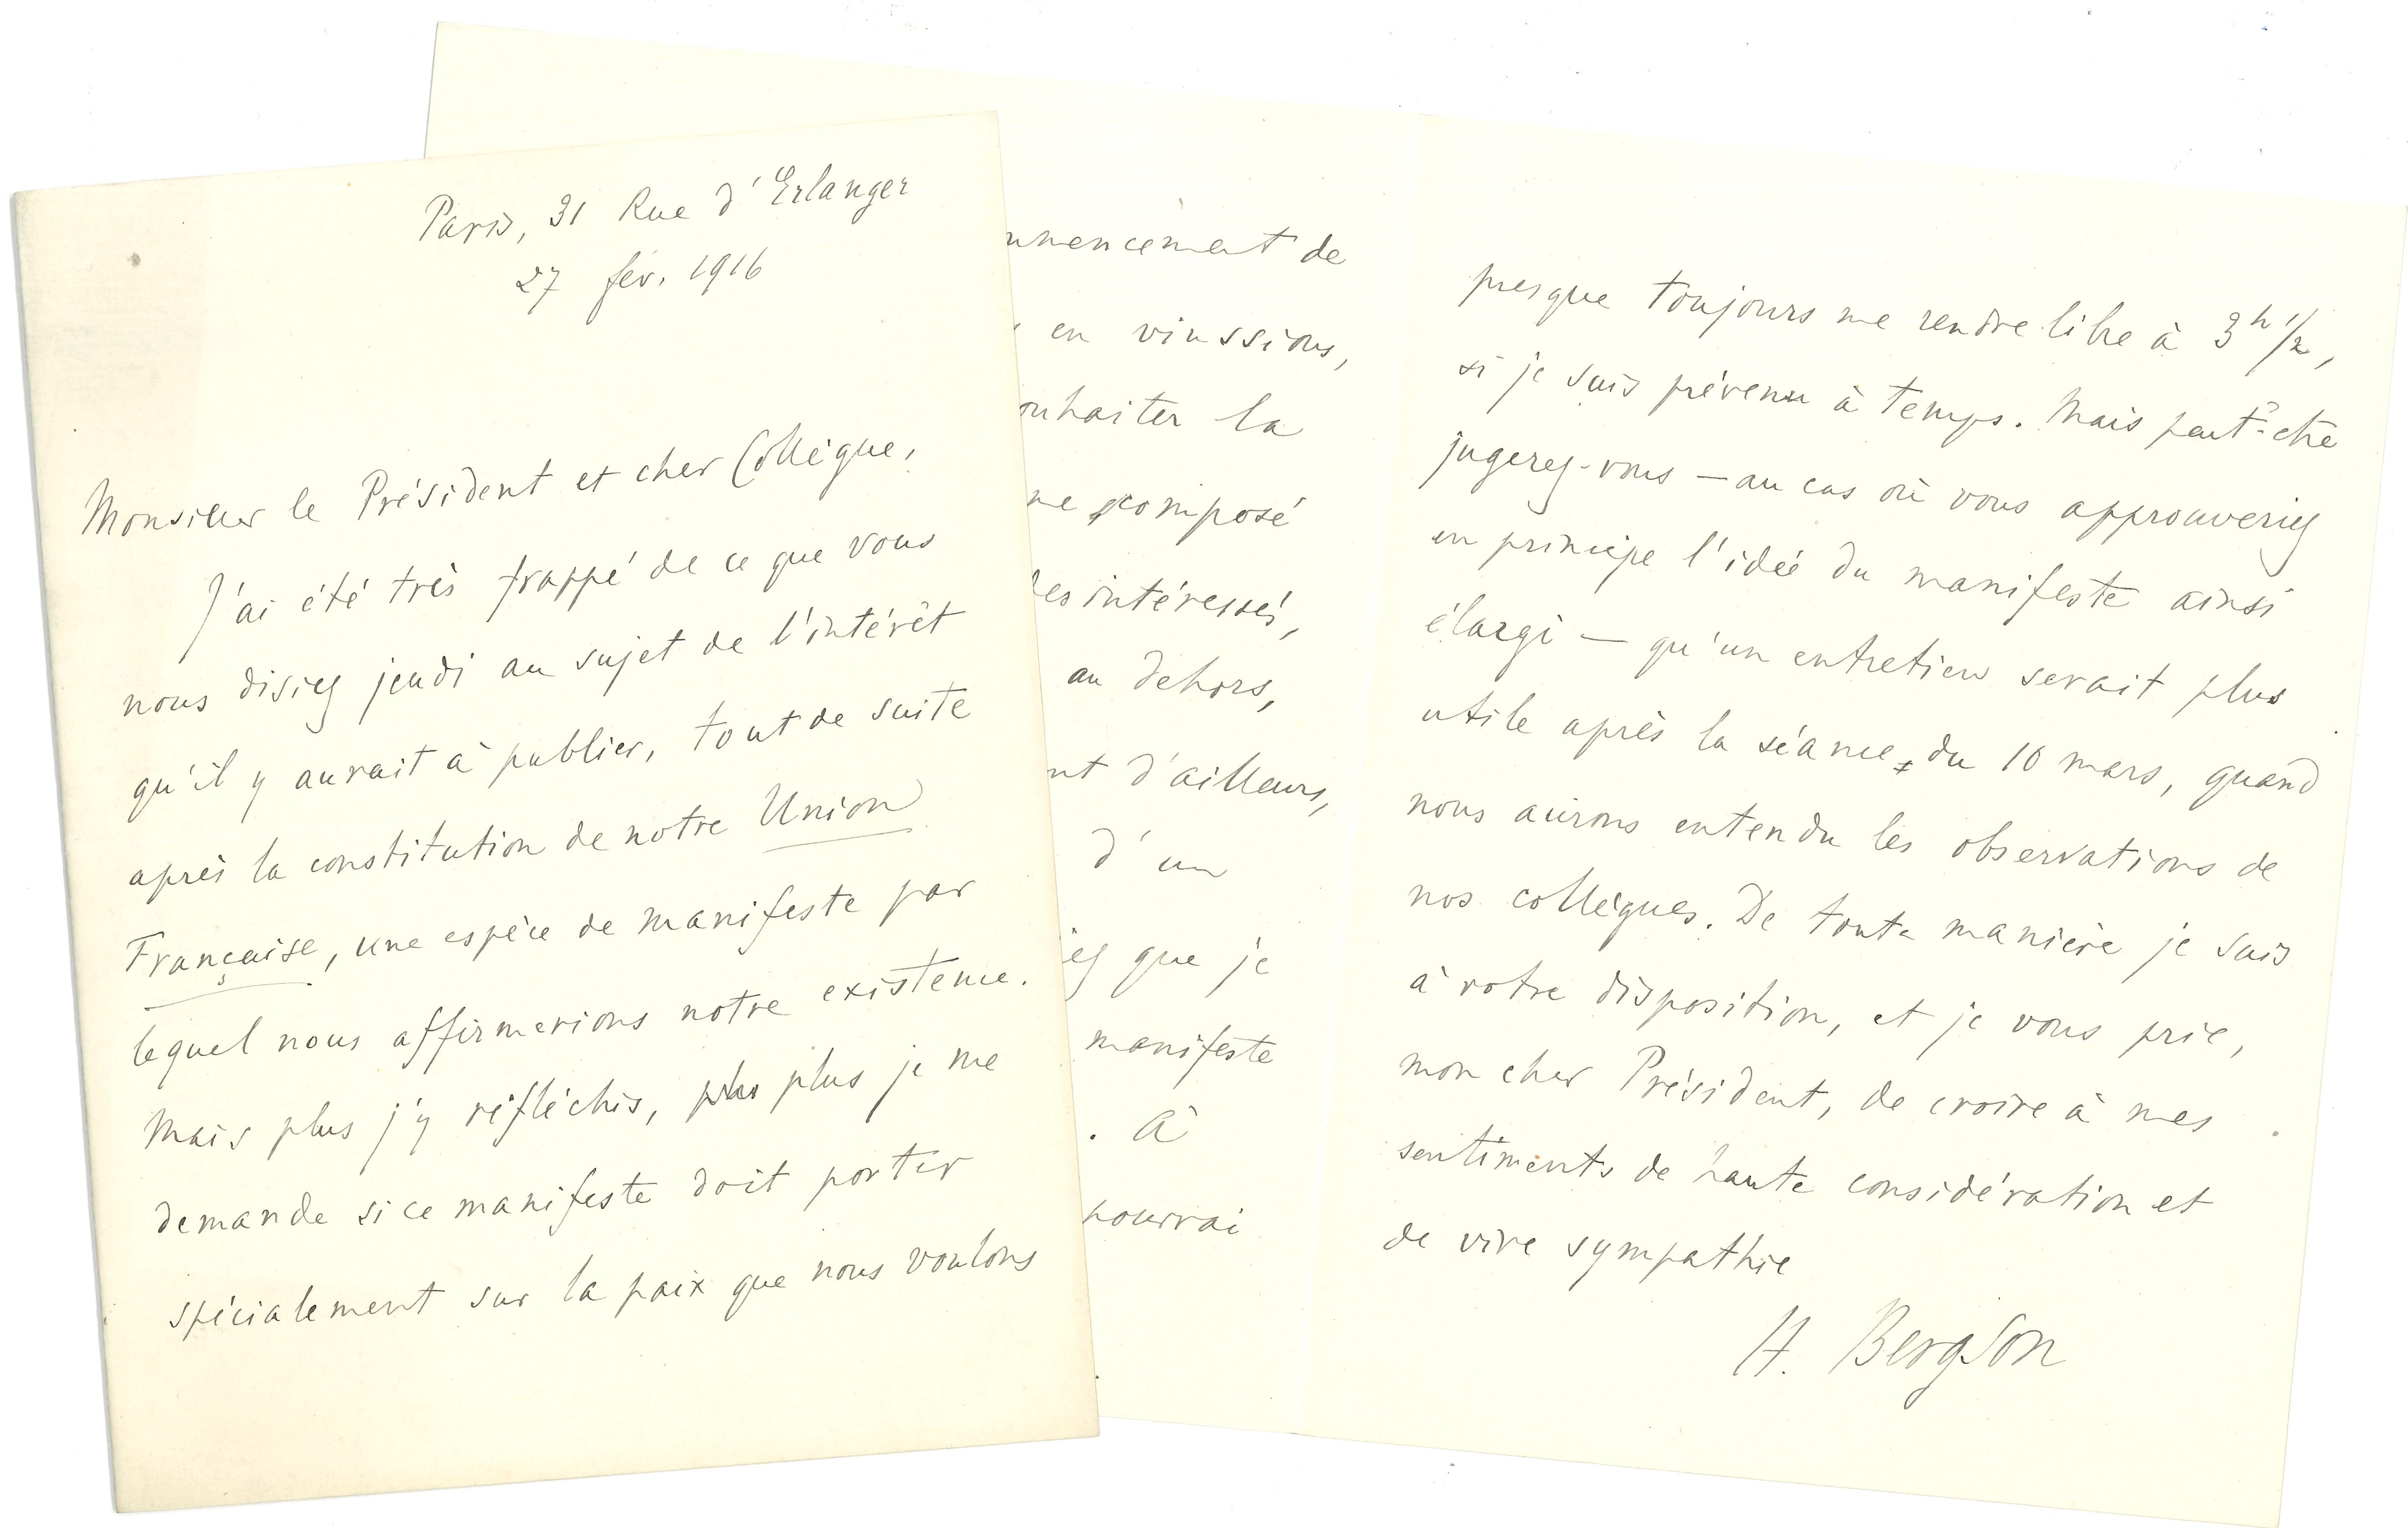 Paris, 31 Rue d'Erlanger
27 fév. 1916
Monsieur le Président et cher Collègue,
J'ai été très frappé de ce que vous
nous disiez jeudi au sujet de l'intérêt
qu'il y aurait à publier, tout de suite
après la constitution de notre Union
Française, une espèce de manifeste par
lequel nous affirmerions notre existence.
Mais plus j'y réfléchis, plus plus je me
demande si ce manifeste doit porter
spécialement sur la paix que nous voulons
mmencement de
en vinssions,
ouhaiter la
me composé
les intéressés,
au dehors,
nt d'ailleurs,
d'un
iez que je
manifeste
. À
pourrai
presque toujours me rendre libre à 3h 1/2,
si je suis prévenu à temps. Mais peut-être
jugerez-vous — au cas où vous approuveriez
en principe l'idée du manifeste ainsi
élargi — qu'un entretien serait plus
utile après la séance du 10 mars, quand
nous aurons entendu les observations de
nos collègues. De toute manière je suis
à votre disposition, et je vous prie,
mon cher Président, de croire à mes
sentiments de haute considération et
de vive sympathie
H. Bergson